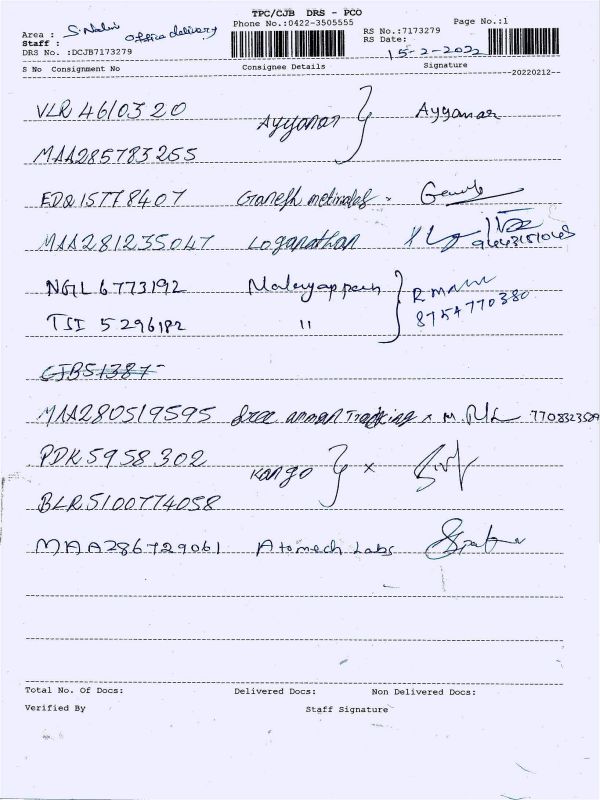 TPC/CJB DRS - PCO
Phone No.:0422-3505555 Page No.:1
Area : office delivery RS No.:7173279
Staff : RS Date:
DRS No. :DCJB7173279 15-2-2022
S No Consignment No Consignee Details Signature
--20220212--
VLR 4610320 Ayyanar } Ayyanar
MAA285783255
EDQ15778407 Ganesh metinals
MAA281235047 Loganathan
NGL6773192 Malayappan } R mani
TSI 5296182 " 8754770380
CJB51387
MAA280519595 Sree amman Trading x M.
PDK5958302 Kango } x
BLR5100774058
MAA286729061 Atomech Labs
Total No. Of Docs: Delivered Docs: Non Delivered Docs:
Verified By Staff Signature